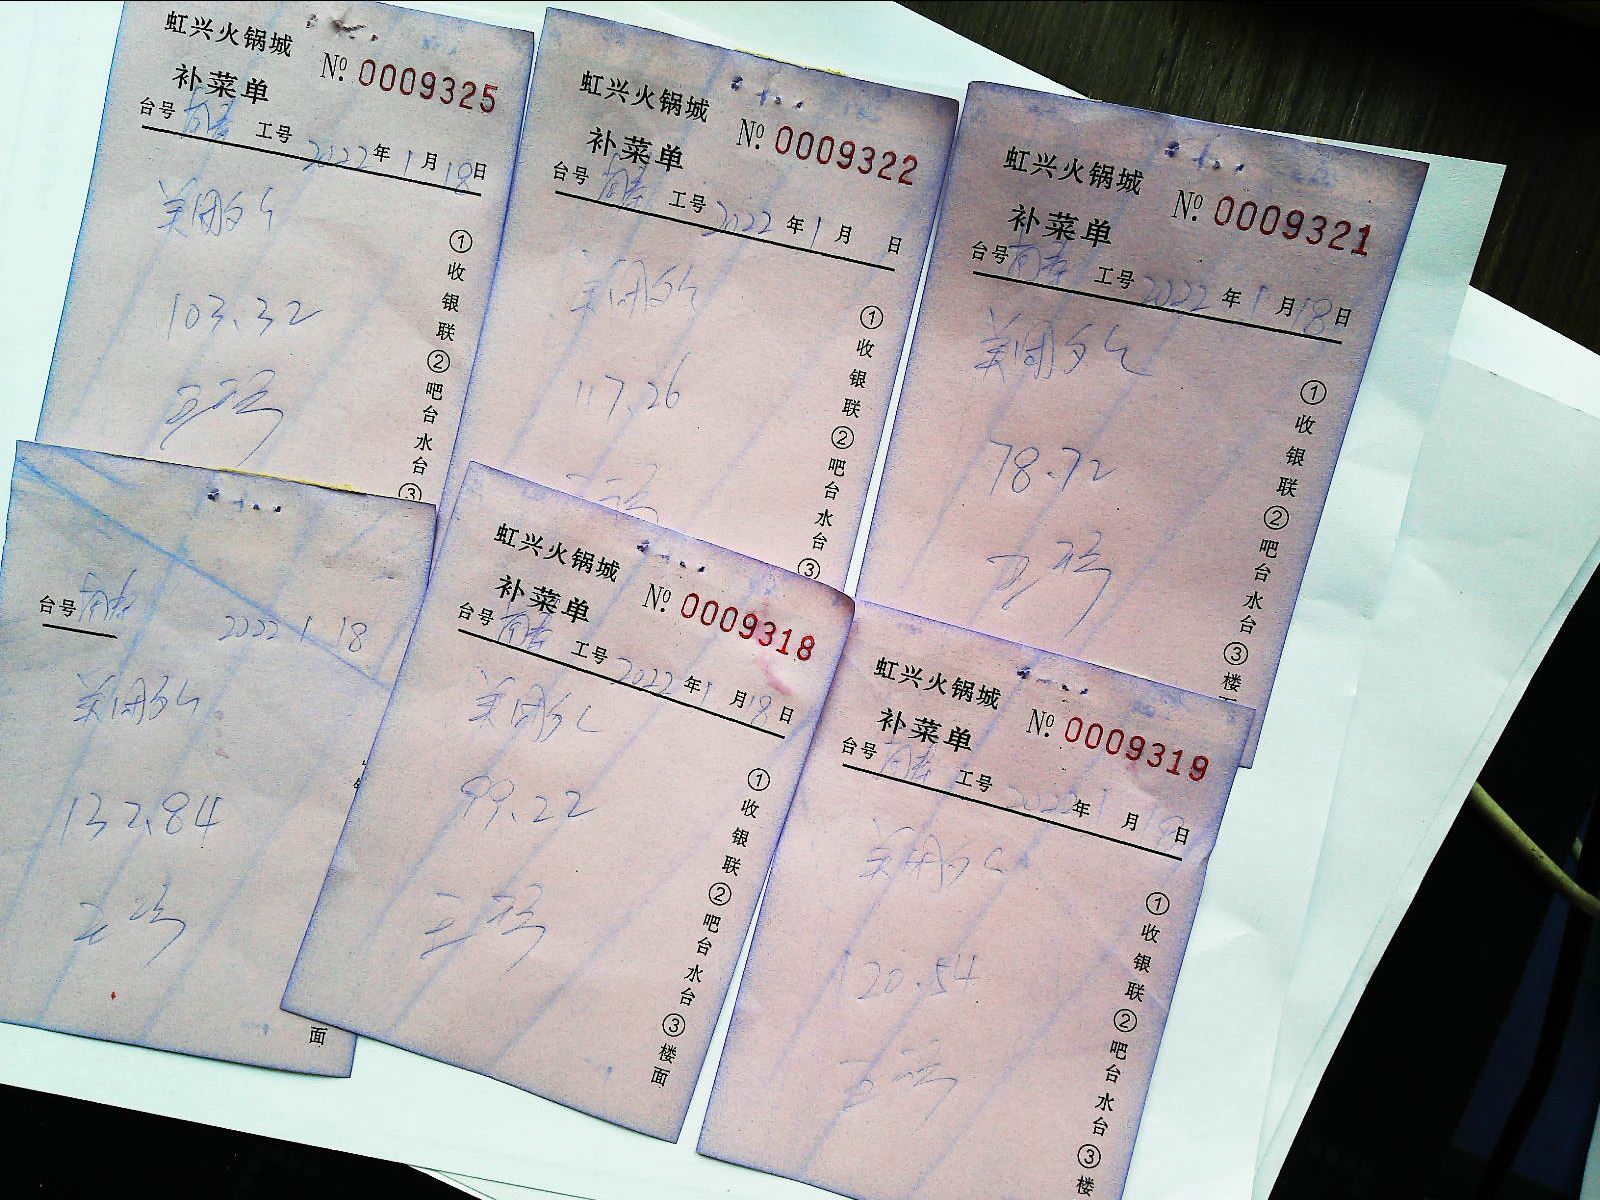 虹兴火锅城
补菜单
№ 0009325
台号 工号
2022年1月18日
美团外卖
103.32
①收银联②吧台水台③
虹兴火锅城
补菜单
№ 0009322
台号 工号
2022年1月 日
美团外卖
117.26
①收银联②吧台水台③
虹兴火锅城
补菜单
№ 0009321
台号 工号
2022年1月18日
美团外卖
78.72
①收银联②吧台水台③楼
台号
2022 1 18
美团外卖
132.84
面
虹兴火锅城
补菜单
№ 0009318
台号 工号
2022年1月18日
美团外卖
99.22
①收银联②吧台水台③楼面
虹兴火锅城
补菜单
№ 0009319
台号 工号
2022年1月18日
美团外卖
120.54
①收银联②吧台水台③楼